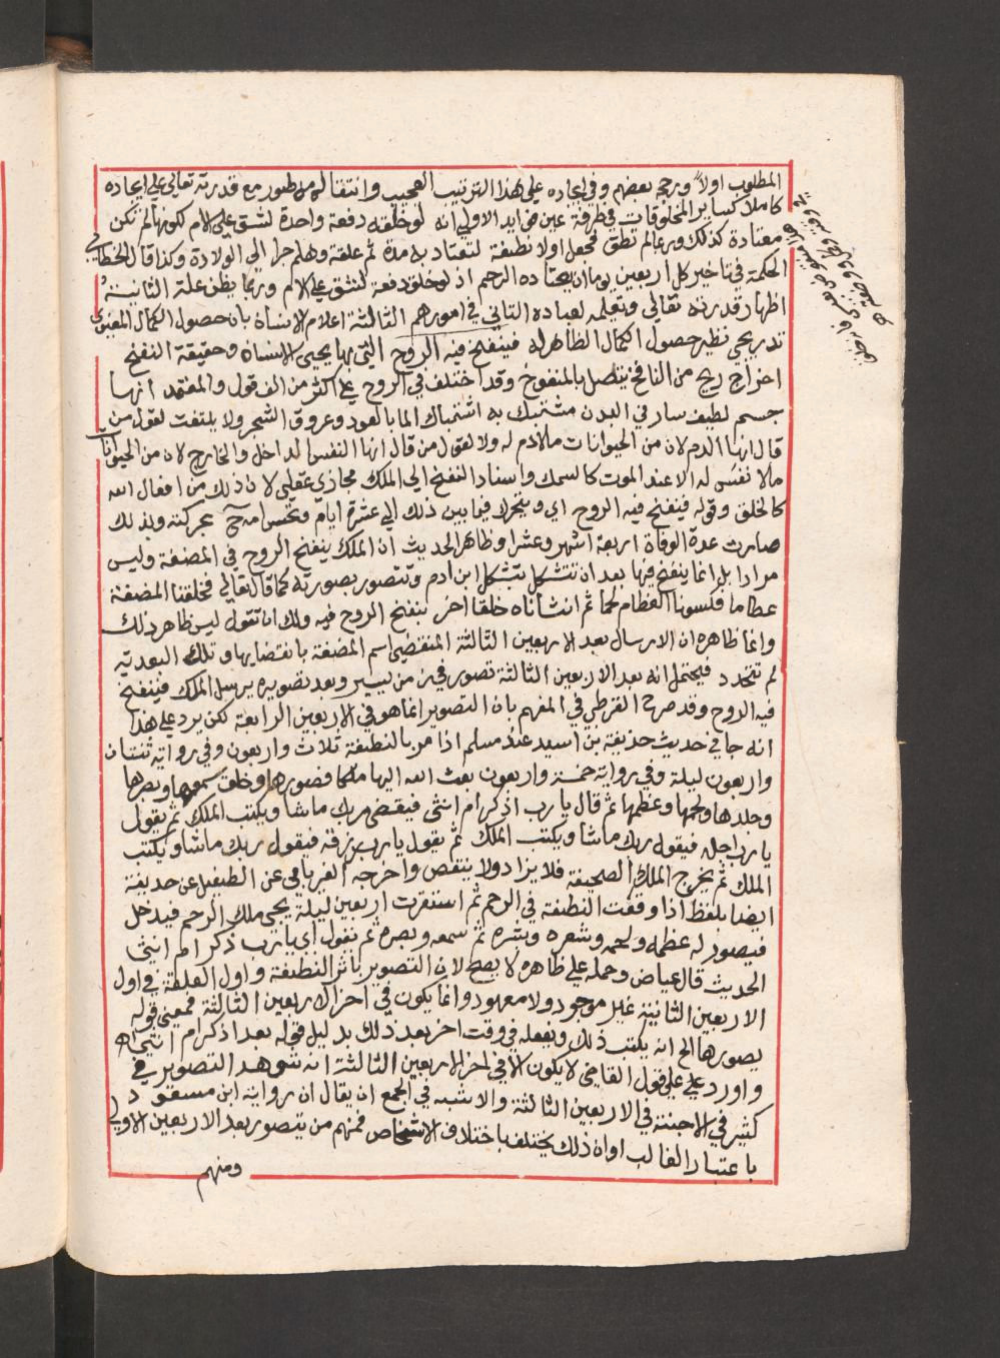 المطلوب اولا ورجح بعضهم وفي ايجاده علي هذا الترتيب العجيب وانتقاله من طور مع قدرته تعالي علي ايجاده
كاملا كساير المخلوقات في طرفة عين فوايد الاولي انه لو خلقه دفعة واحدة لشق علي الام لكونها لم تكن
معتادة كذلك وربما لم تطق فجعل اولا نطفة لتعتاد به مدة ثم علقة وهلم جرا الي الولادة وكذا قال الخطابي
الحكمة في تاخير كل اربعين يوما ان يعتاده الرحم اذ لو خلق دفعة لشق علي الام وربما يظن علة الثانية
اظهار قدرته تعالي وتعليمه لعباده التاني في امورهم الثالثة اعلام الانسان بان حصول الكمال المعنوي
تدريجي نظير حصول الكمال الظاهر له فينفخ فيه الروح التي بها يحيي الانسان وحقيقة النفخ
اخراج ريح من النافخ يتصل بالمنفوخ وقد اختلف في الروح علي اكثر من الف قول والمعتمد انها
جسم لطيف سار في البدن مشتبك به اشتباك الما بالعود وعروق الشجر ولا يلتفت لقول من
قال انها الدم لان من الحيوانات ما لا دم له ولا لقول من قال انها النفس الداخل والخارج لان من الحيوانات
ما لا نفس له الا عند الموت كالسمك واسناد النفخ الي الملك مجازي عقلي لان ذلك من افعال الله
كالخلق وقوله فينفخ فيه الروح اي ويتحرك فيما بين ذلك الي عشرة ايام وتحس امه ح بحركته ولذلك
صارت عدة الوفاة اربعة اشهر وعشرا وظاهر الحديث ان الملك ينفخ الروح في المضغة وليس
مرادا بل انما ينفخ فيها بعد ان تتشكل بتشكل ابن ادم وتتصور بصورته كما قال تعالي فخلقنا المضغة
عظاما فكسونا العظام لحما ثم انشاناه خلقا اخر بنفخ الروح فيه ولك ان تقول ليس ظاهر ذلك
وانما ظاهره ان الارسال بعد الاربعين الثالثة المنقضي اسم المضغة بانقضايها وتلك البعدية
لم تتحدد فيحتمل انه بعد الاربعين الثالثة تصور في زمن يسير وبعد تصويره يرسل الملك فينفخ
فيه الروح وقد صرح القرطبي في المفهم بان التصوير انما هو في الاربعين الرابعة لكن يرد علي هذا
انه جا في حديث حذيفة بن اسيد عند مسلم اذا مر بالنطفة ثلاث واربعون وفي رواية ثنتان
واربعون ليلة وفي رواية خمسة واربعون بعث الله اليها ملكا فصورها وخلق سمعها وبصرها
وجلدها ولحمها وعظمها ثم قال يا رب اذكر ام انثي فيقضي ربك ما شا ويكتب الملك ثم يقول
يا رب اجله فيقول ربك ما شا ويكتب الملك ثم يقول يا رب رزقه فيقول ربك ما شا ويكتب
الملك ثم يخرج الملك الصحيفة فلا يزاد ولا ينقص واخرجه الفريابي عن الطفيل عن حذيفة
ايضا بلفظ اذا وقعت النطفة في الرحم ثم استقرت اربعين ليلة يجي ملك الرحم فيدخل
فيصور له عظمه ولحمه وشعره وبشره ثم سمعه وبصره ثم يقول اي يا رب اذكر ام انثي
الحديث قال عياض وحمله علي ظاهره لا يصح لان التصوير باثر النطفة واول العلقة في اول
الاربعين الثانية غير موجود ولا معهود وانما يكون في اخر الاربعين الثالثة فمعني قوله
يصورها الخ انه يكتب ذلك ويفعله في وقت اخر بعد ذلك بدليل قوله بعد اذكر ام انثي اه
واورد علي علي قول القاضي لا يكون الا في اخر الاربعين الثالثة انه شوهد التصوير في
كثير في الاجنة في الاربعين الثالثة والاشبه في الجمع ان يقال ان رواية ابن مسعود
باعتبار الغالب او ان ذلك يختلف باختلاف الاشخاص فمنهم من يتصور بعد الاربعين الاولي
ومنهم